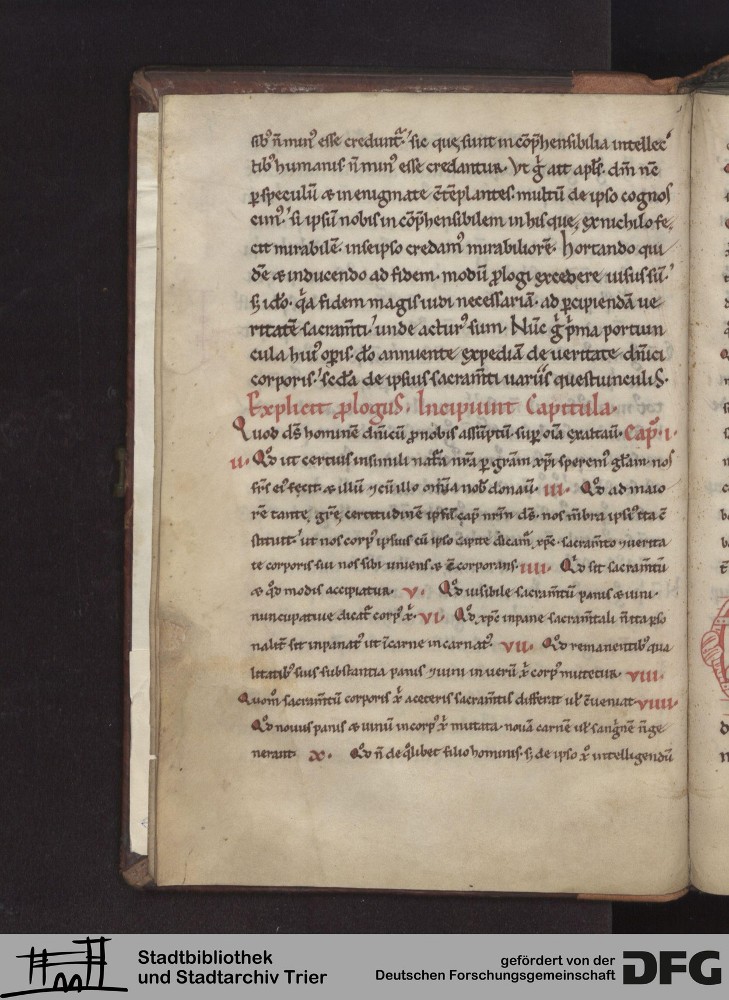 sib' n̄ min' esse creduntᷣ. sic que sunt incōp̄hensibilia intellec
tib' humanis n̄ min' esse credantur. Vt g̊ ait apl's. dm̄ n̄c
ꝑ speculū & in enigmate c̄tēplantes. multū de ipso cognos
cim'. si ipsū nobis incōp̄hensibilem in his que ex nichilo fe
cit mirabilē. in seipso credam' mirabiliorē. hortando qui
dē & inducendo ad fidem. modū ꝓlogi excedere uisus sū.
s; ido. q̄a fidem magis iudi necessariā. ad ꝑcipiendā ue
ritatē sacram̄ti. unde actur' sum. Nūc g̊ p̄ma portiun
cula hui' opis. do annuente expediā de ueritate dn̄ici
corporis. sc̄da de ipsius sacram̄ti uariis questiunculis.
Explicit ꝓlogus. Incipiunt Capitula.
Quod ds̄ hominē dn̄icū ꝓ nobis assūptū. sup oīa exaltauit. Cap. i.
ii. Qd ut certius in simili nat̄a nr̄a ꝑ gr̄am xp̄i sperem' gl̄am. nos
fr̄s ei' fecit. & illū & cū illo om̄ia nob' donauit. iii. Qd ad maio
rē tante gr̄e certitudinē ipsū cap' nr̄m ds̄. nos m̄bra ipsi' ita c̄
stituit. ut nos corp' ipsius cū ipso capite dicam' xp̄c. sacram̄to & uerita
te corporis sui nos sibi uniens & c̄corporans. iiii. Qd sit sacram̄tū
& qd modis accipiatur. v. Qd uisibile sacram̄tū panis & uini
nuncupatiue dicatᷣ corp' x̄. vi. Qd xp̄c in pane sacram̄tali n̄ ita ꝑso
nalitᷣ sit inpanat' ut ī carne incarnat'. vii. Qd remanentib' qua
litatib' suis substantia panis & uini in uerū x̄ corp' mutetur. viii.
Quom̄ sacram̄tū corporis x̄ a ceteris sacram̄tis differat uł c̄ueniat. viiii.
Qd nouus panis & uinū in corp' x̄ mutata. nouā carnē uł sang̊nē n̄ ge
nerant. x. Qd n̄ de q̊libet filio hominis. s; de ipso x̄ intelligendū
Stadtbibliothek
und Stadtarchiv Trier
gefördert von der
Deutschen Forschungsgemeinschaft
DFG